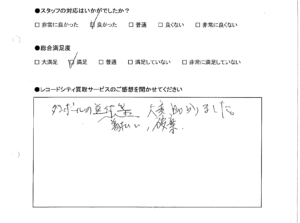 ●スタッフの対応はいかがでしたか？
□ 非常に良かった □ 良かった □ 普通 □ 良くない □ 非常に良くない
●総合満足度
□ 大満足 □ 満足 □ 普通 □ 満足していない □ 非常に満足していない
●レコードシティ買取サービスのご感想を聞かせてください
ダンボールの 大変助かりました